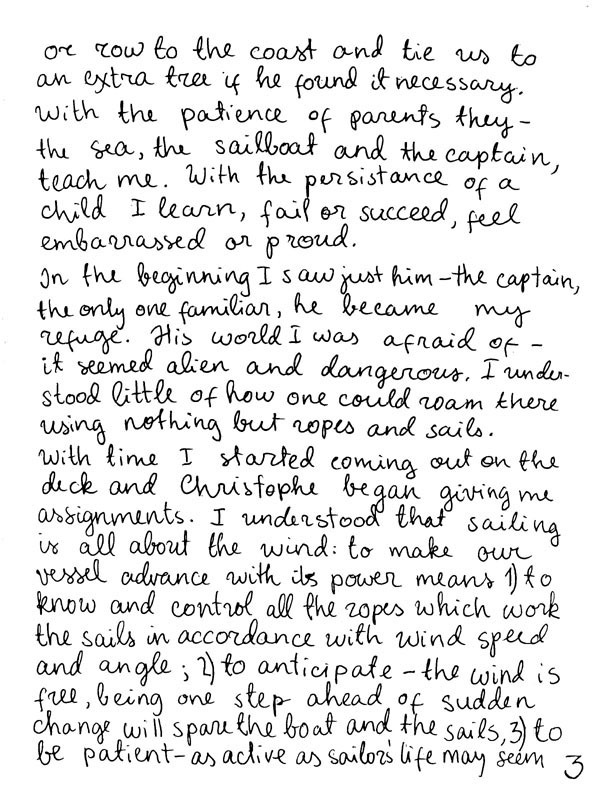 or row to the coast and tie us to
an extra tree if he found it necessary.
With the patience of parents they –
the sea, the sailboat and the captain,
teach me. With the persistance of a
child I learn, fail or succeed, feel
embarrassed or proud.
In the beginning I saw just him – the captain,
the only one familiar, he became my
refuge. His world I was afraid of –
it seemed alien and dangerous. I under-
stood little of how one could roam there
using nothing but ropes and sails.
With time I started coming out on the
deck and Christophe began giving me
assignments. I understood that sailing
is all about the wind: to make our
vessel advance with its power means 1) to
know and control all the ropes which work
the sails in accordance with wind speed
and angle; 2) to anticipate – the wind is
free, being one step ahead of sudden
change will spare the boat and the sails, 3) to
be patient – as active as sailors' life may seem 3